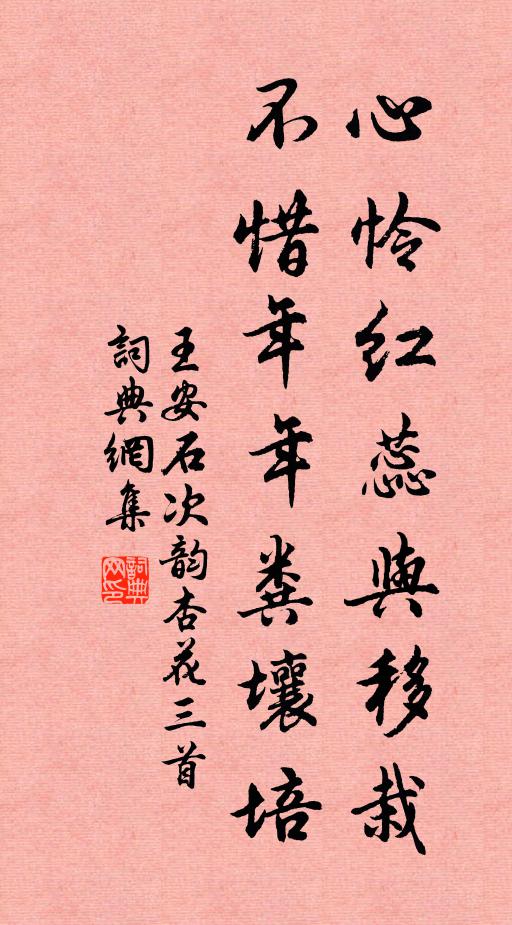 心怜红蕊與移栽
不惜年年粪壤培
王安石次韵杏花三首
詞典網集
詞典网印